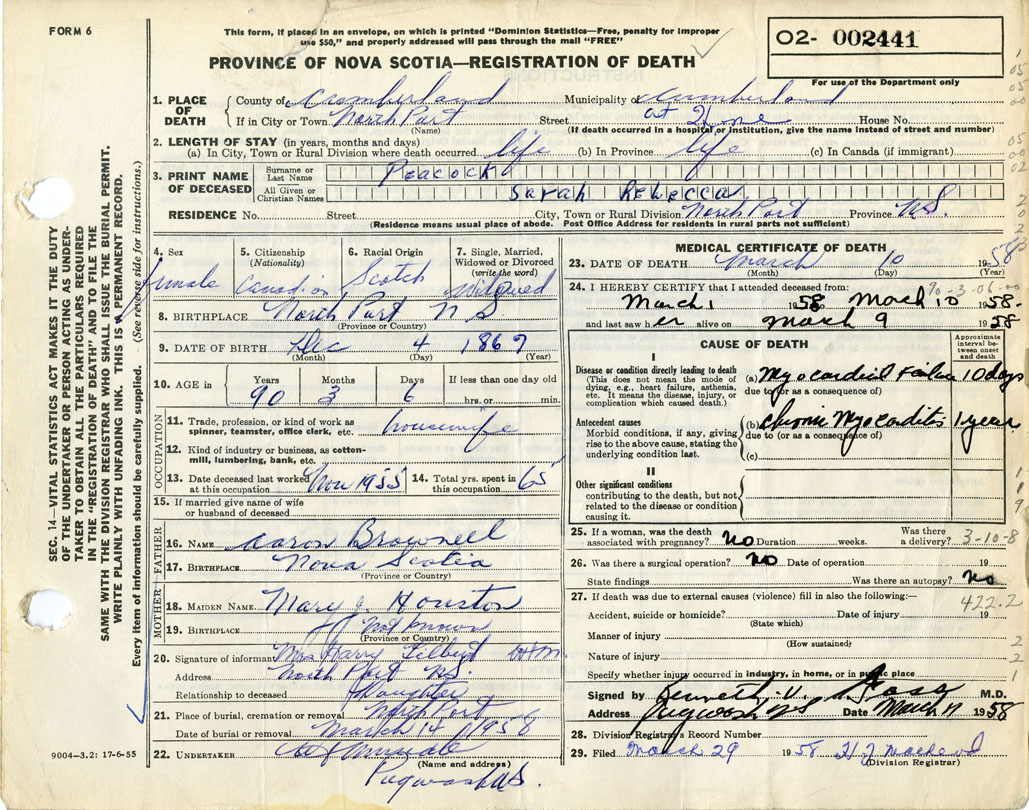 FORM 6
This form, if placed in an envelope, on which is printed "Dominion Statistics—Free, penalty for improper
use $50," and properly addressed will pass through the mail "FREE"
O2- 002441
For use of the Department only
PROVINCE OF NOVA SCOTIA—REGISTRATION OF DEATH
1. PLACE OF DEATH
County of Cumberland Municipality of Cumberland
If in City or Town North Port Street at Home House No.
(Name) (If death occurred in a hospital or institution, give the name instead of street and number)
2. LENGTH OF STAY (in years, months and days)
(a) In City, Town or Rural Division where death occurred life (b) In Province life (c) In Canada (if immigrant)
3. PRINT NAME OF DECEASED
Surname or Last Name Peacock
All Given or Christian Names Sarah Rebecca
RESIDENCE No. Street City, Town or Rural Division North Port Province N.S.
(Residence means usual place of abode. Post Office Address for residents in rural parts not sufficient)
4. Sex 5. Citizenship (Nationality) 6. Racial Origin 7. Single, Married, Widowed or Divorced (write the word)
female Canadian Scotch Widowed
8. BIRTHPLACE North Port N S
(Province or Country)
9. DATE OF BIRTH Dec 4 1867
(Month) (Day) (Year)
10. AGE in Years Months Days If less than one day old
90 3 6 hrs. or min.
OCCUPATION
11. Trade, profession, or kind of work as spinner, teamster, office clerk, etc. housewife
12. Kind of industry or business, as cotton-mill, lumbering, bank, etc.
13. Date deceased last worked at this occupation Nov 1955 14. Total yrs. spent in this occupation 65
15. If married give name of wife or husband of deceased
FATHER
16. NAME Aaron Brownell
17. BIRTHPLACE Nova Scotia
(Province or Country)
MOTHER
18. MAIDEN NAME Mary J. Houston
19. BIRTHPLACE Not known
(Province or Country)
20. Signature of informant Mrs Harry
Address North Port N.S.
Relationship to deceased Daughter
21. Place of burial, cremation or removal North Port
Date of burial or removal March 14 1958
22. UNDERTAKER
(Name and address)
Pugwash N.S.
9004—3.2: 17-6-55
MEDICAL CERTIFICATE OF DEATH
23. DATE OF DEATH March 10 1958
(Month) (Day) (Year)
24. I HEREBY CERTIFY that I attended deceased from:
90-3-06-00
March 1 1958 March 10 1958
and last saw her alive on March 9 1958
CAUSE OF DEATH
Approximate interval between onset and death
I
Disease or condition directly leading to death
(This does not mean the mode of dying, e.g., heart failure, asthenia, etc. It means the disease, injury, or complication which caused death.)
(a) Myocardial Failure 10 days
due to (or as a consequence of)
Antecedent causes
Morbid conditions, if any, giving rise to the above cause, stating the underlying condition last.
(b) Chronic Myocarditis 1 year
due to (or as a consequence of)
(c)
II
Other significant conditions
contributing to the death, but not related to the disease or condition causing it.
25. If a woman, was the death associated with pregnancy? No Duration weeks. Was there a delivery?
3-10-8
26. Was there a surgical operation? No Date of operation 19
State findings Was there an autopsy? No
27. If death was due to external causes (violence) fill in also the following:—
422.2
Accident, suicide or homicide? Date of injury 19
(State which)
Manner of injury
(How sustained)
Nature of injury
Specify whether injury occurred in industry, in home, or in public place
Signed by Kenneth M.D.
Address Pugwash NS Date March 11 1958
28. Division Registrar's Record Number
29. Filed March 29 1958
(Division Registrar)
SEC. 14—VITAL STATISTICS ACT MAKES IT THE DUTY
OF THE UNDERTAKER OR PERSON ACTING AS UNDER-
TAKER TO OBTAIN ALL THE PARTICULARS REQUIRED
IN THE "REGISTRATION OF DEATH" AND TO FILE THE
SAME WITH THE DIVISION REGISTRAR WHO SHALL ISSUE THE BURIAL PERMIT.
WRITE PLAINLY WITH UNFADING INK. THIS IS A PERMANENT RECORD.
Every item of information should be carefully supplied. (See reverse side for instructions.)